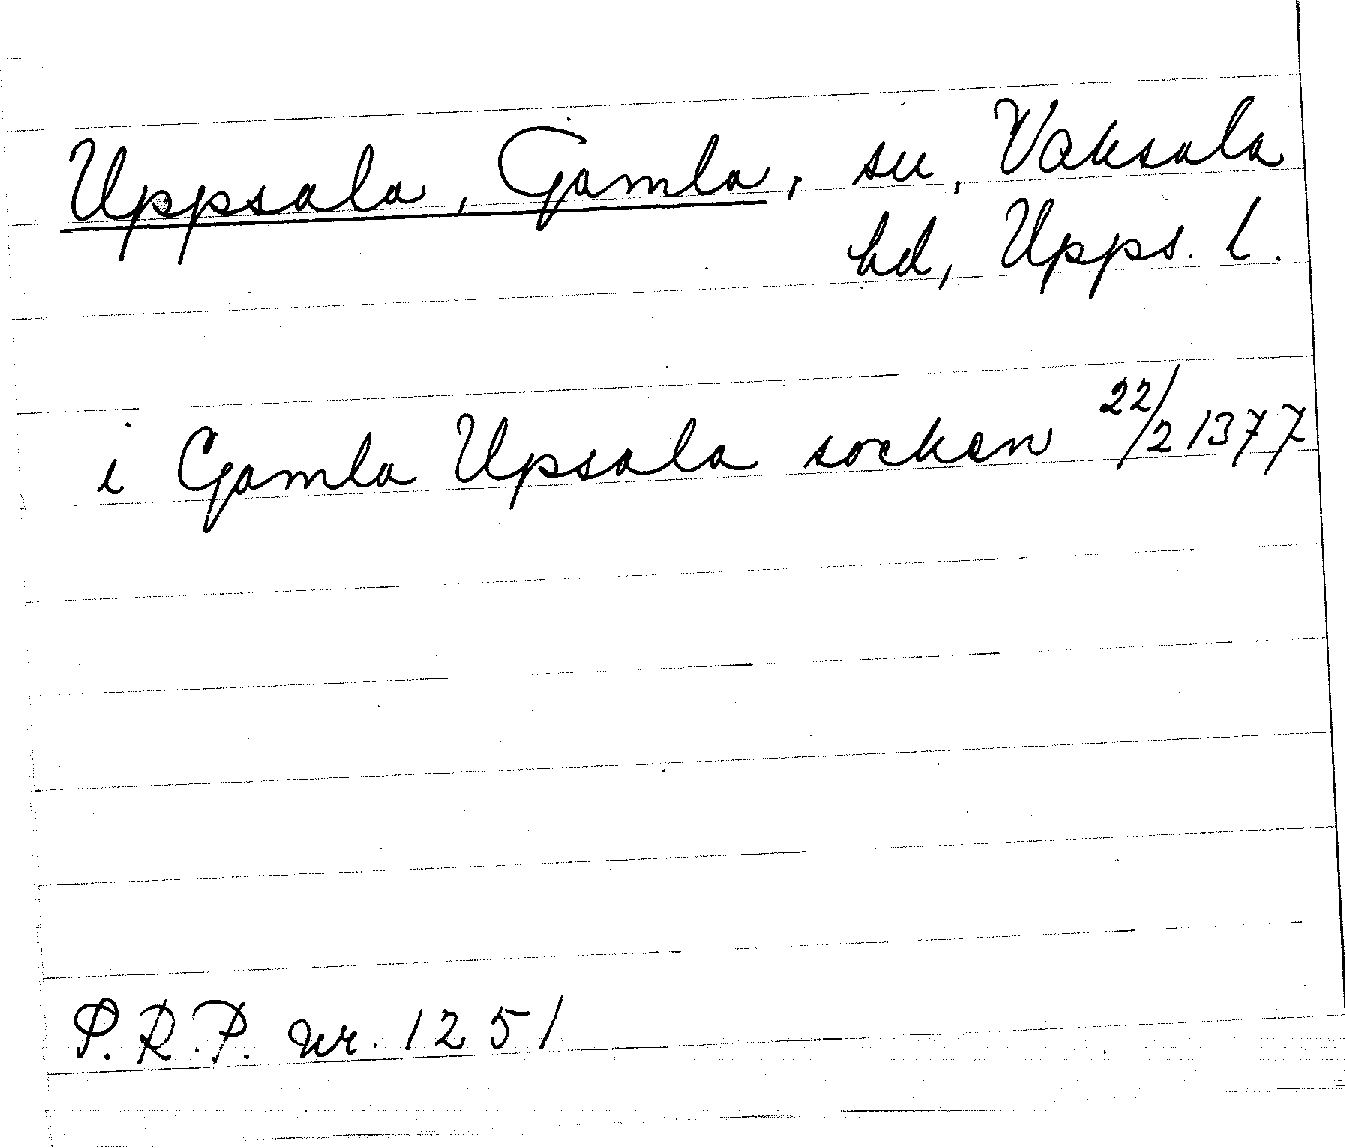 Uppsala, Gamla, sn, Vaksala
hd, Upps. l.
i Gamla Upsala socken 22/2 1377
S.R.P. nr. 1251